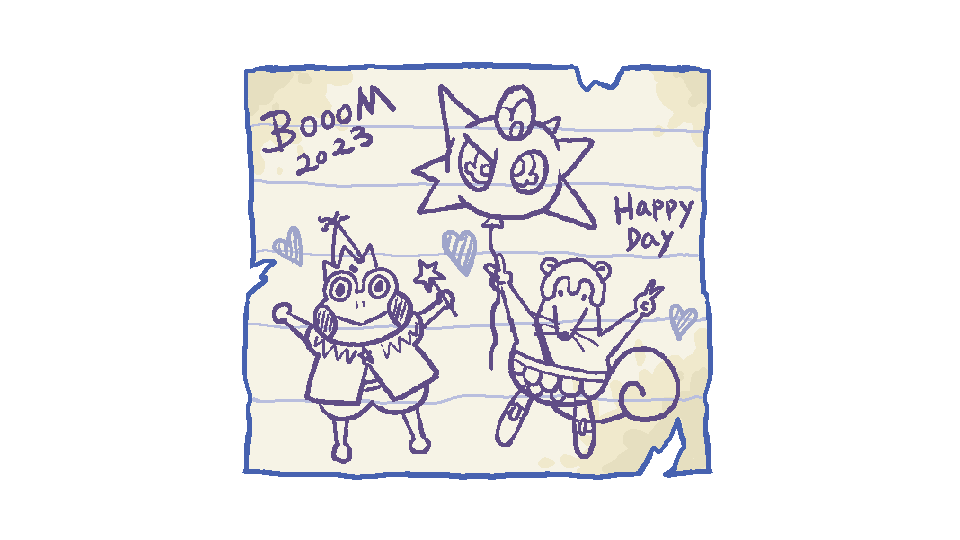 BOOOM
2023
Happy
Day